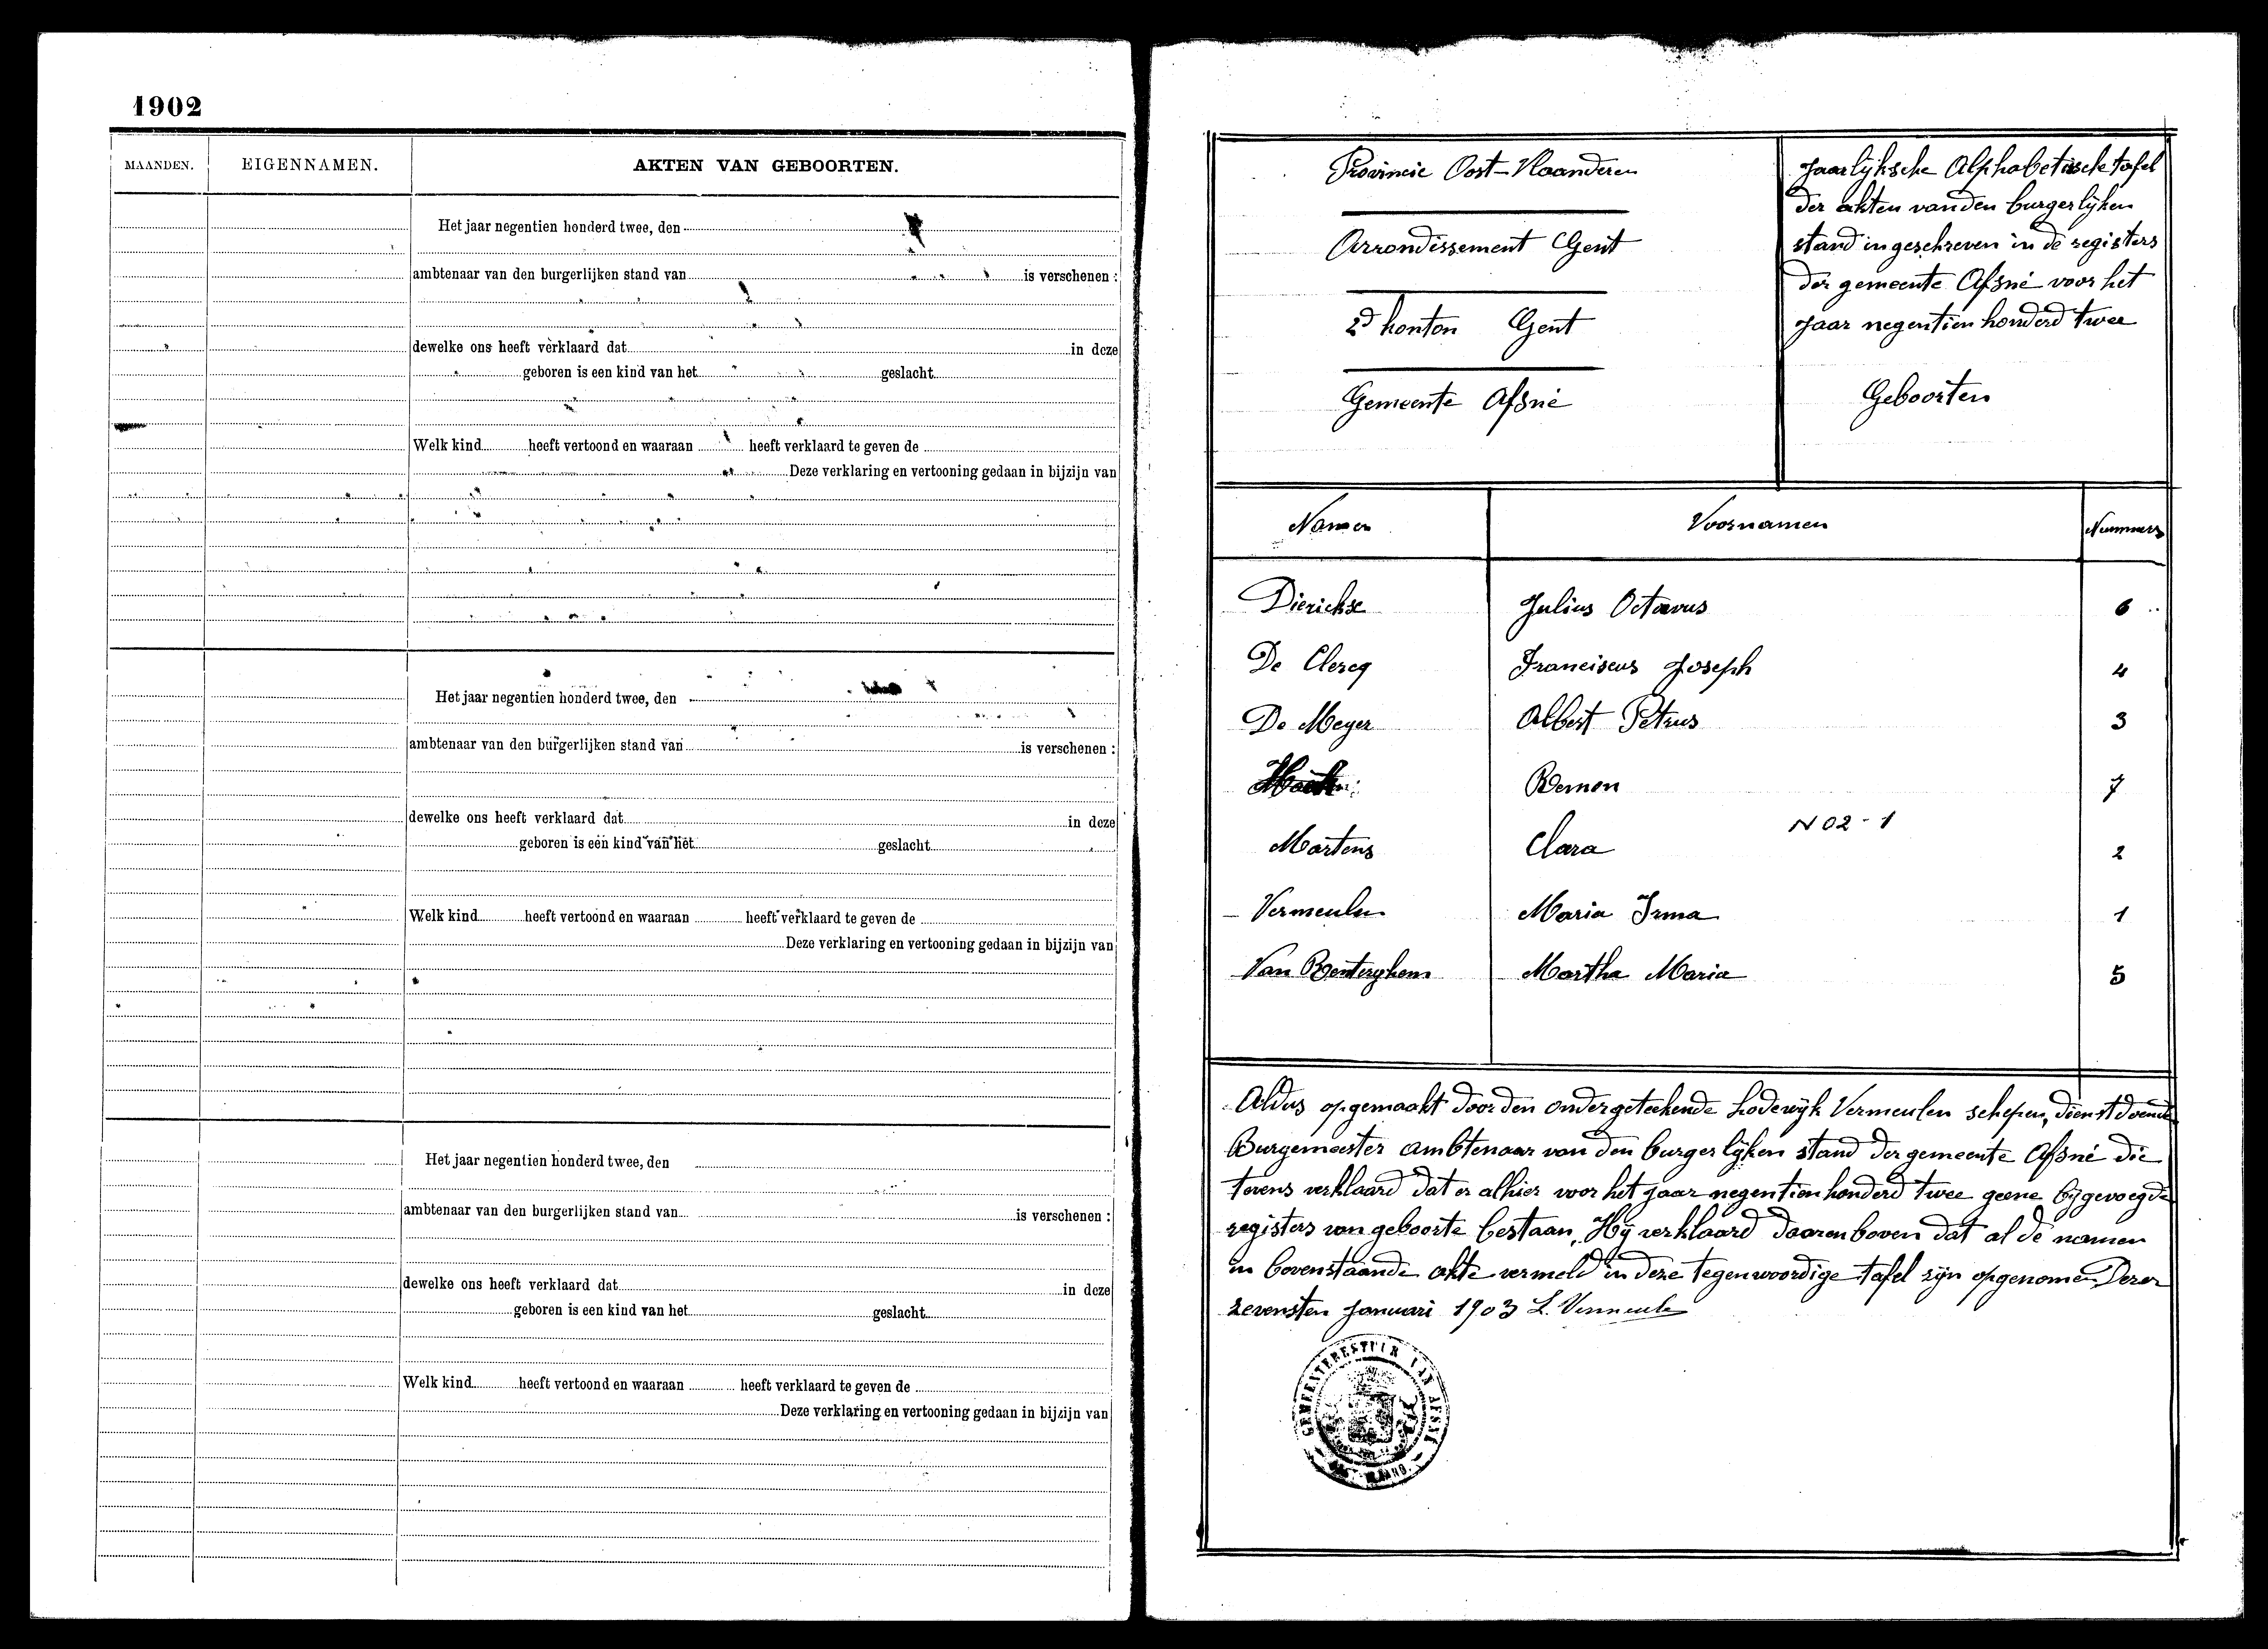 1902
MAANDEN. EIGENNAMEN. AKTEN VAN GEBOORTEN.
Het jaar negentien honderd twee, den
ambtenaar van den burgerlijken stand van is verschenen :
dewelke ons heeft verklaard dat in deze
geboren is een kind van het geslacht
Welk kind heeft vertoond en waaraan heeft verklaard te geven de
Deze verklaring en vertooning gedaan in bijzijn van
Het jaar negentien honderd twee, den
ambtenaar van den burgerlijken stand van is verschenen :
dewelke ons heeft verklaard dat in deze
geboren is een kind van het geslacht
Welk kind heeft vertoond en waaraan heeft verklaard te geven de
Deze verklaring en vertooning gedaan in bijzijn van
Het jaar negentien honderd twee, den
ambtenaar van den burgerlijken stand van is verschenen :
dewelke ons heeft verklaard dat in deze
geboren is een kind van het geslacht
Welk kind heeft vertoond en waaraan heeft verklaard te geven de
Deze verklaring en vertooning gedaan in bijzijn van
Provincie Oost-Vlaanderen
Arrondissement Gent
2d kanton Gent
Gemeente Afsné
Jaarlijksche Alphabetische tafel
der akten van den burgerlijken
stand ingeschreven in de registers
der gemeente Afsné voor het
jaar negentien honderd twee
Geboorten
Namen Voornamen Nummers
Dierickx Julius Octavus 6
De Clercq Franciscus Joseph 4
De Meyer Albert Petrus 3
Remon 7
N 02 - 1
Martens Clara 2
Vermeulen Maria Irma 1
Van Renterghem Martha Maria 5
Aldus opgemaakt door den ondergeteekende Lodewijk Vermeulen schepen, dienstdoende
Burgemeester ambtenaar van den burgerlijken stand der gemeente Afsné die
tevens verklaard dat er alhier voor het jaar negentien honderd twee geene bijgevoegde
registers van geboorte bestaan, Hij verklaard daarenboven dat al de namen
in bovenstaande akte vermeld in deze tegenwoordige tafel zijn opgenomen Dezen
zevensten Januari 1903 L. Vermeulen
GEMEENTEBESTUUR VAN AFSNÉ